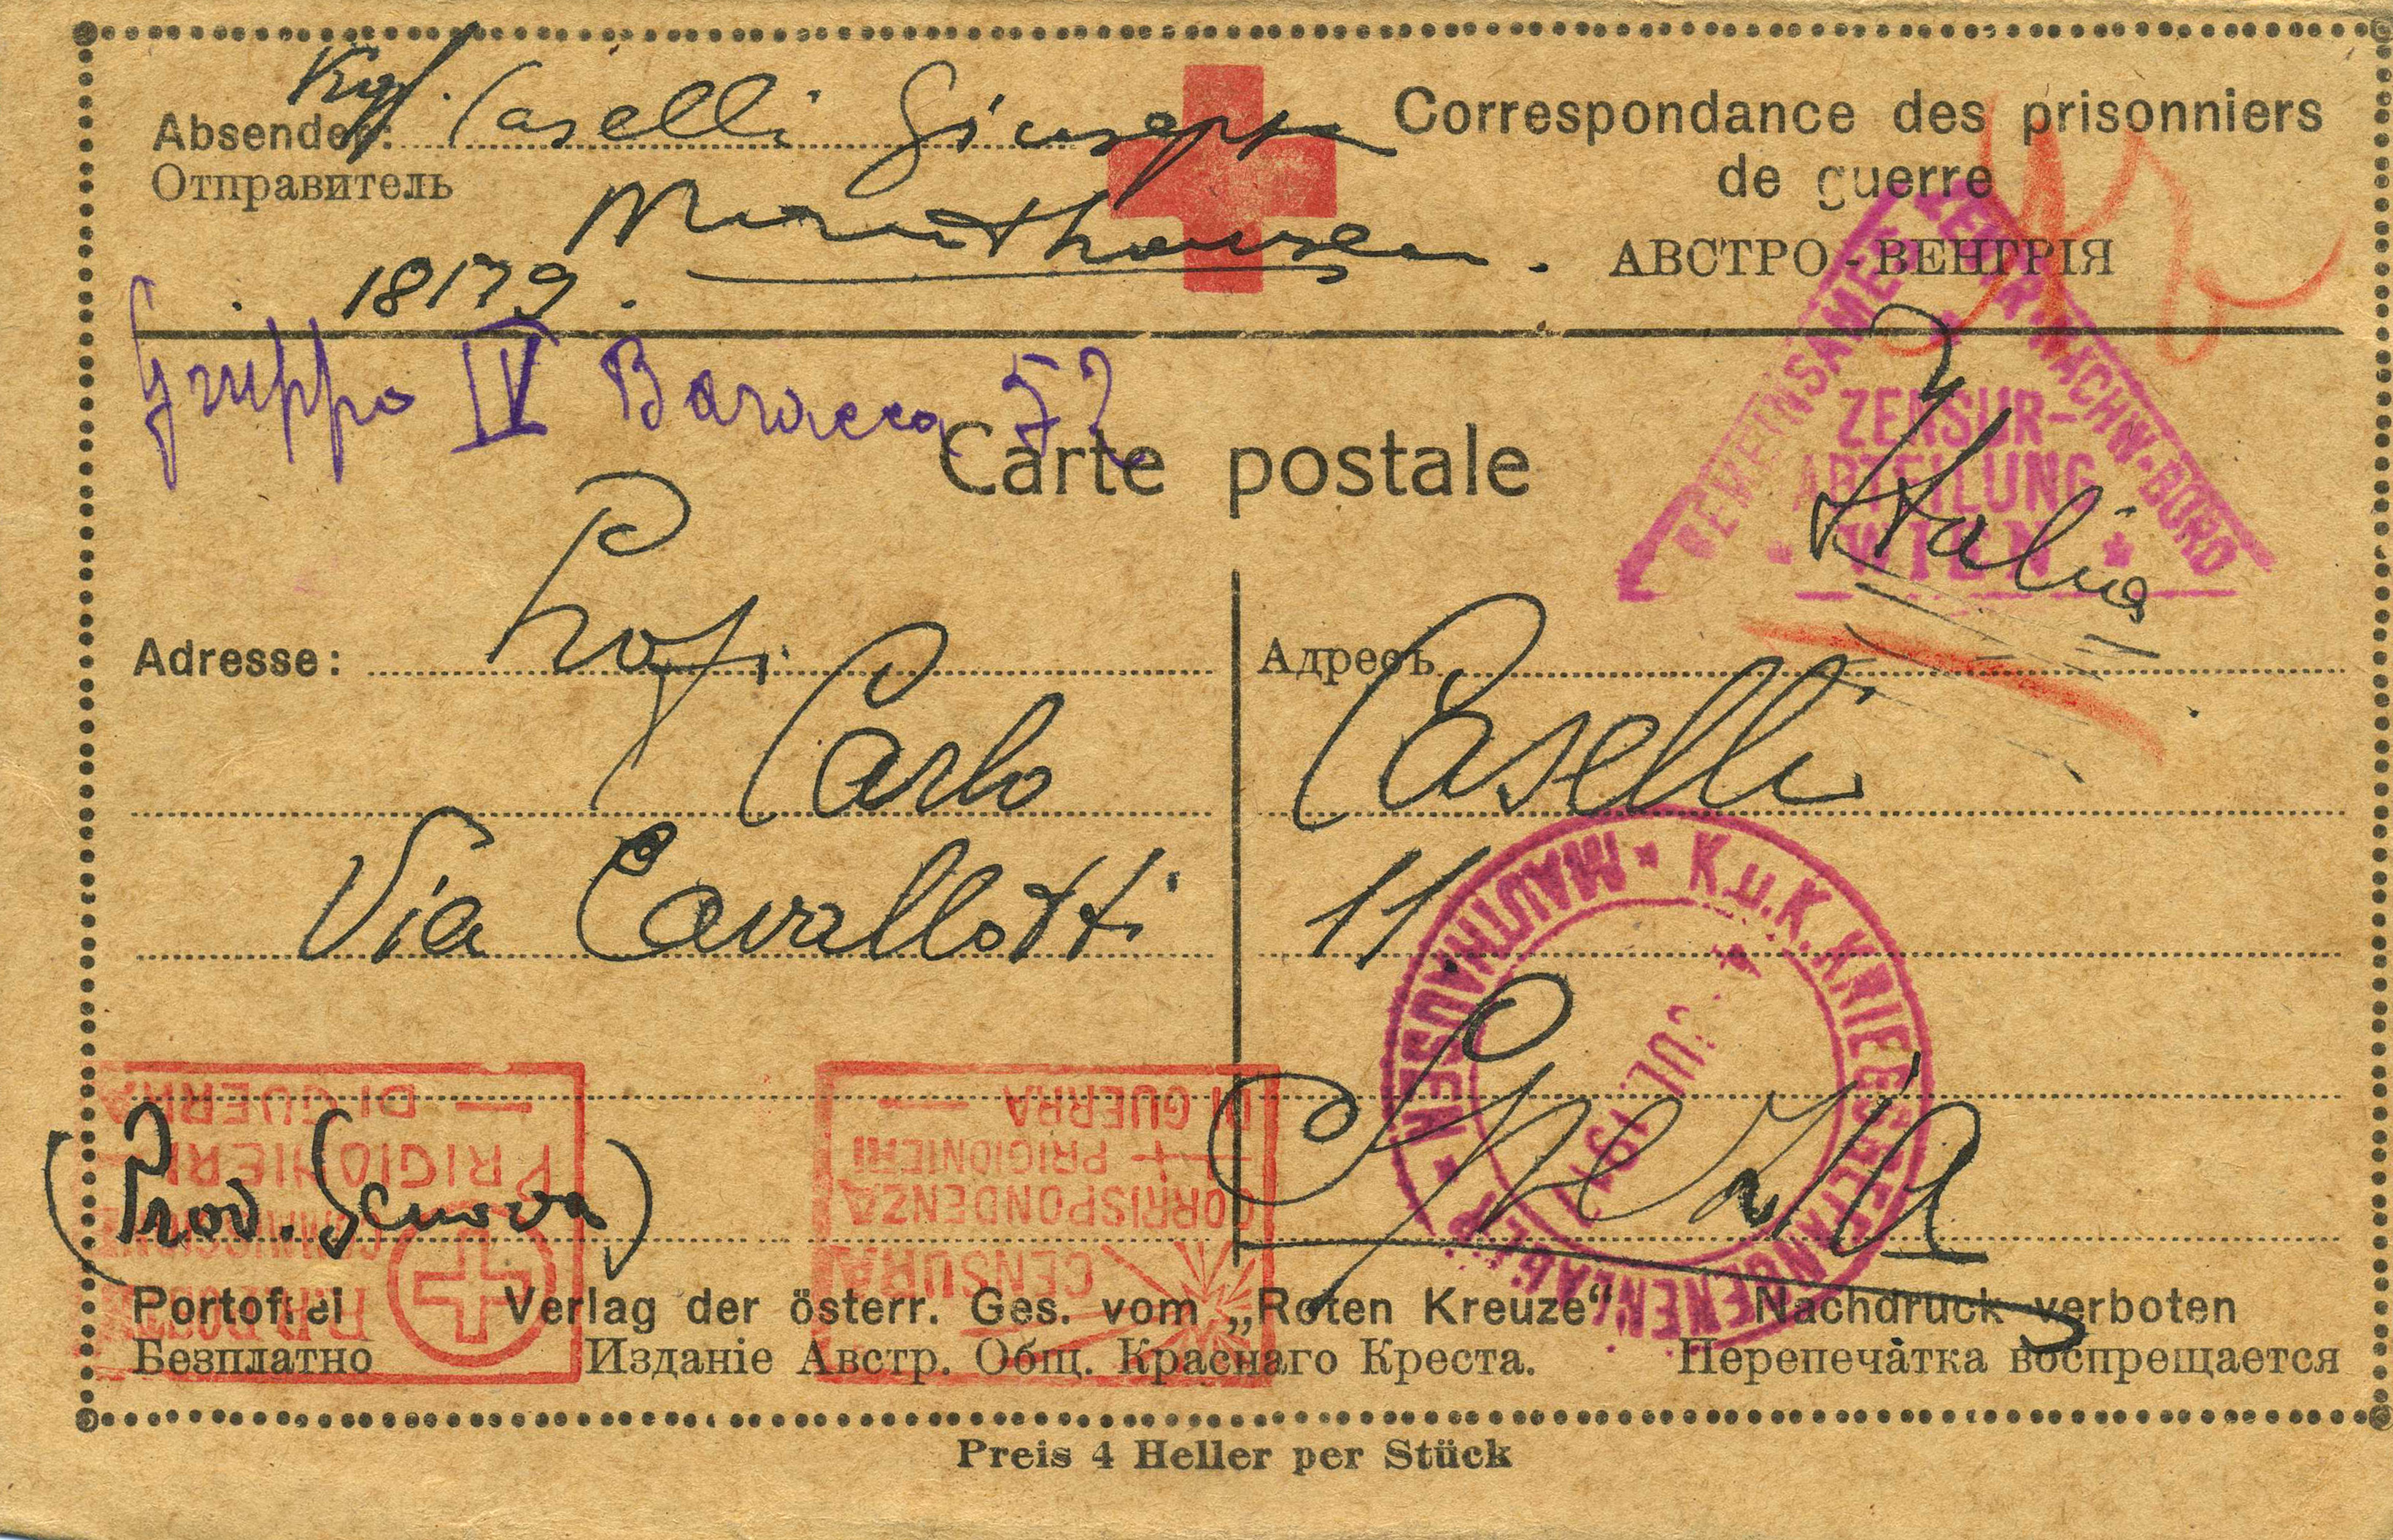 Kgf. Caselli Giuseppe
Absender:
Отправитель
Mauthausen.
18179.
Correspondance des prisonniers
de guerre
АВСТРО-ВЕНГРІЯ
Gruppo IV Baracca 52
Carte postale
GEMEINSAMES ZENTR. NACHW. BÜRO
ZENSUR-
ABTEILUNG
WIEN
Italia
Adresse: Prof.
Адресъ
Carlo Caselli
Via Cavallotti 11
Spezia
(Prov. Genova)
MAUTHAUSEN * K.u.K. KRIEGSGEFANGENENLAGER
JULI 191
PRIGIONIERI
DI GUERRA
CENSURA
CORRISPONDENZA
PRIGIONIERI
DI GUERRA
Portofrei Verlag der österr. Ges. vom „Roten Kreuze“ Nachdruck verboten
Безплатно Изданіе Австр. Общ. Краснаго Креста. Перепечатка воспрещается
Preis 4 Heller per Stück